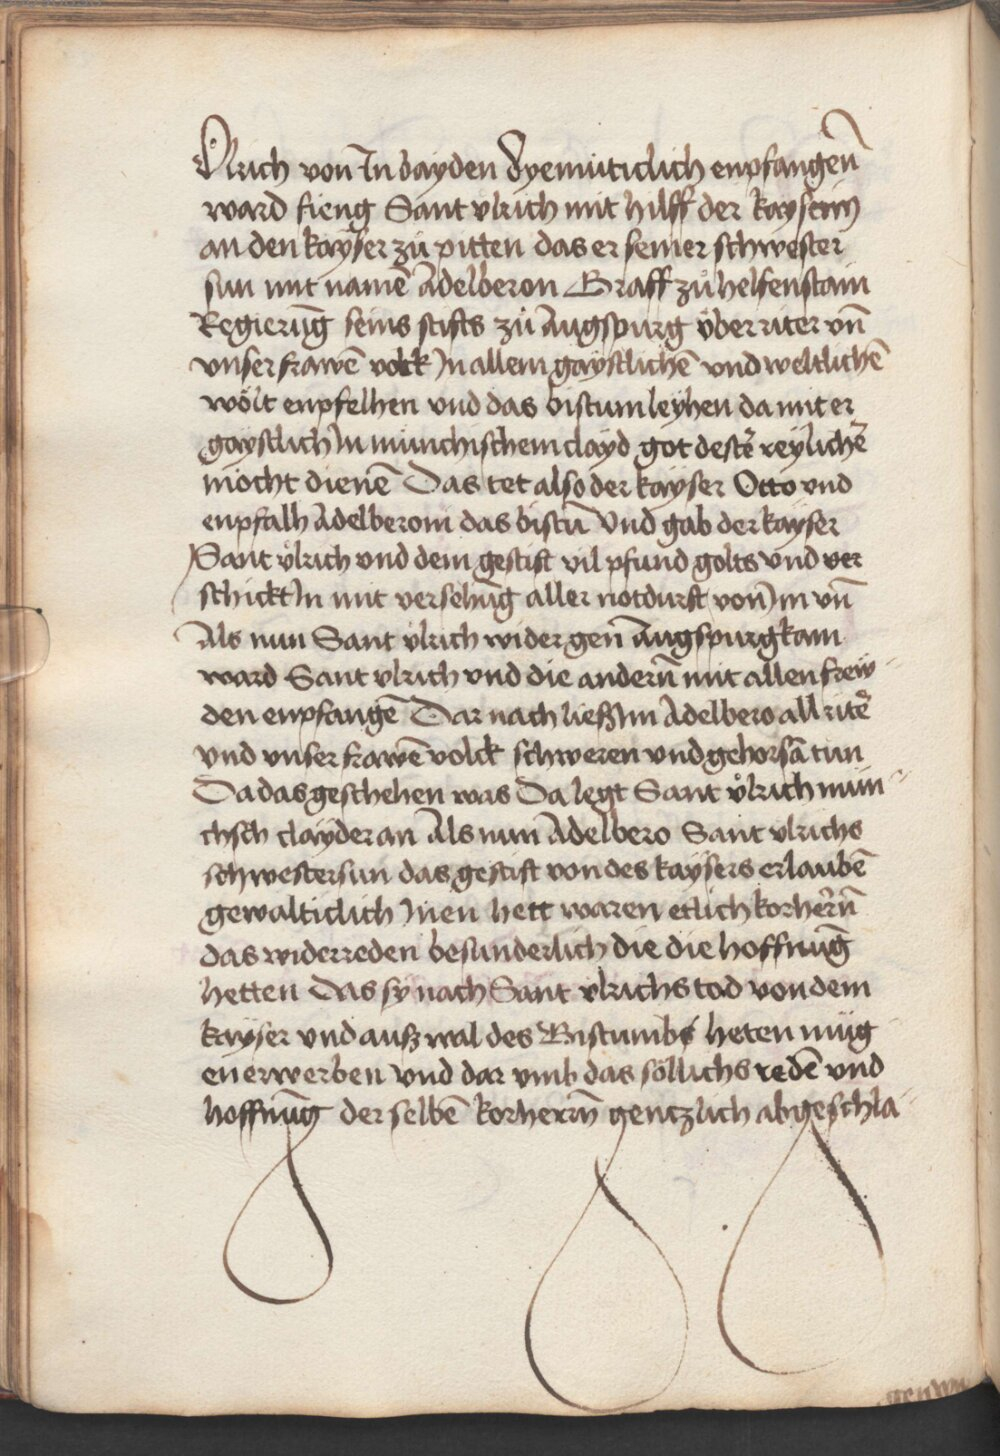 Ulrich von In bayden dyemüticlich enpfangen̄
ward fieng Sant vlrich mit hilff der kayserin
an den kayser zů pitten das er seiner schwester
sun mit namē Adelberon Graff zů helfenstain
Regierūg seins stifts zů Augspurg über riter vn̄
vnser frawē volck In allem gaystlichē vnd weltlichē
wölt enpfelhen vnd das bistum leyhen da mit er
gaystlich In münchischem clayd got destē reylichē
möcht dienē Das tet also der kayser Otto vnd
enpfalh Adelberom das bistū Vnd gab der kayser
Sant vlrich vnd dem gestift vil pfund golts vnd ver
schickt In mit versehūg aller notdurft von Im vn̄
Als nun Sant vlrich wider gen Augspurg kam
ward Sant vlrich vnd die andern̄ mit allen frew
den enpfangē Dar nach ließ Im Adelbero all ritē
vnd vnser frawē volck schweren vnd gehorsā tun
Da das geschehen was Da legt Sant vlrich mün
chsch clayder an Als nun Adelbero Sant vlrichs
schwestersun das gestift von des kaysers erlaubē
gewalticlich Inen hett waren etlich korhern̄
das widerreden besunderlich die die hoffnūg
hetten Das sy nach Sant vlrichs tod von dem
kayser vnd auß wal des Bistumbs heten müg
en erwerben vnd dar vmb das söllichs redē vnd
hoffnūg der selbē korherrn̄ gentzlich abgeschla